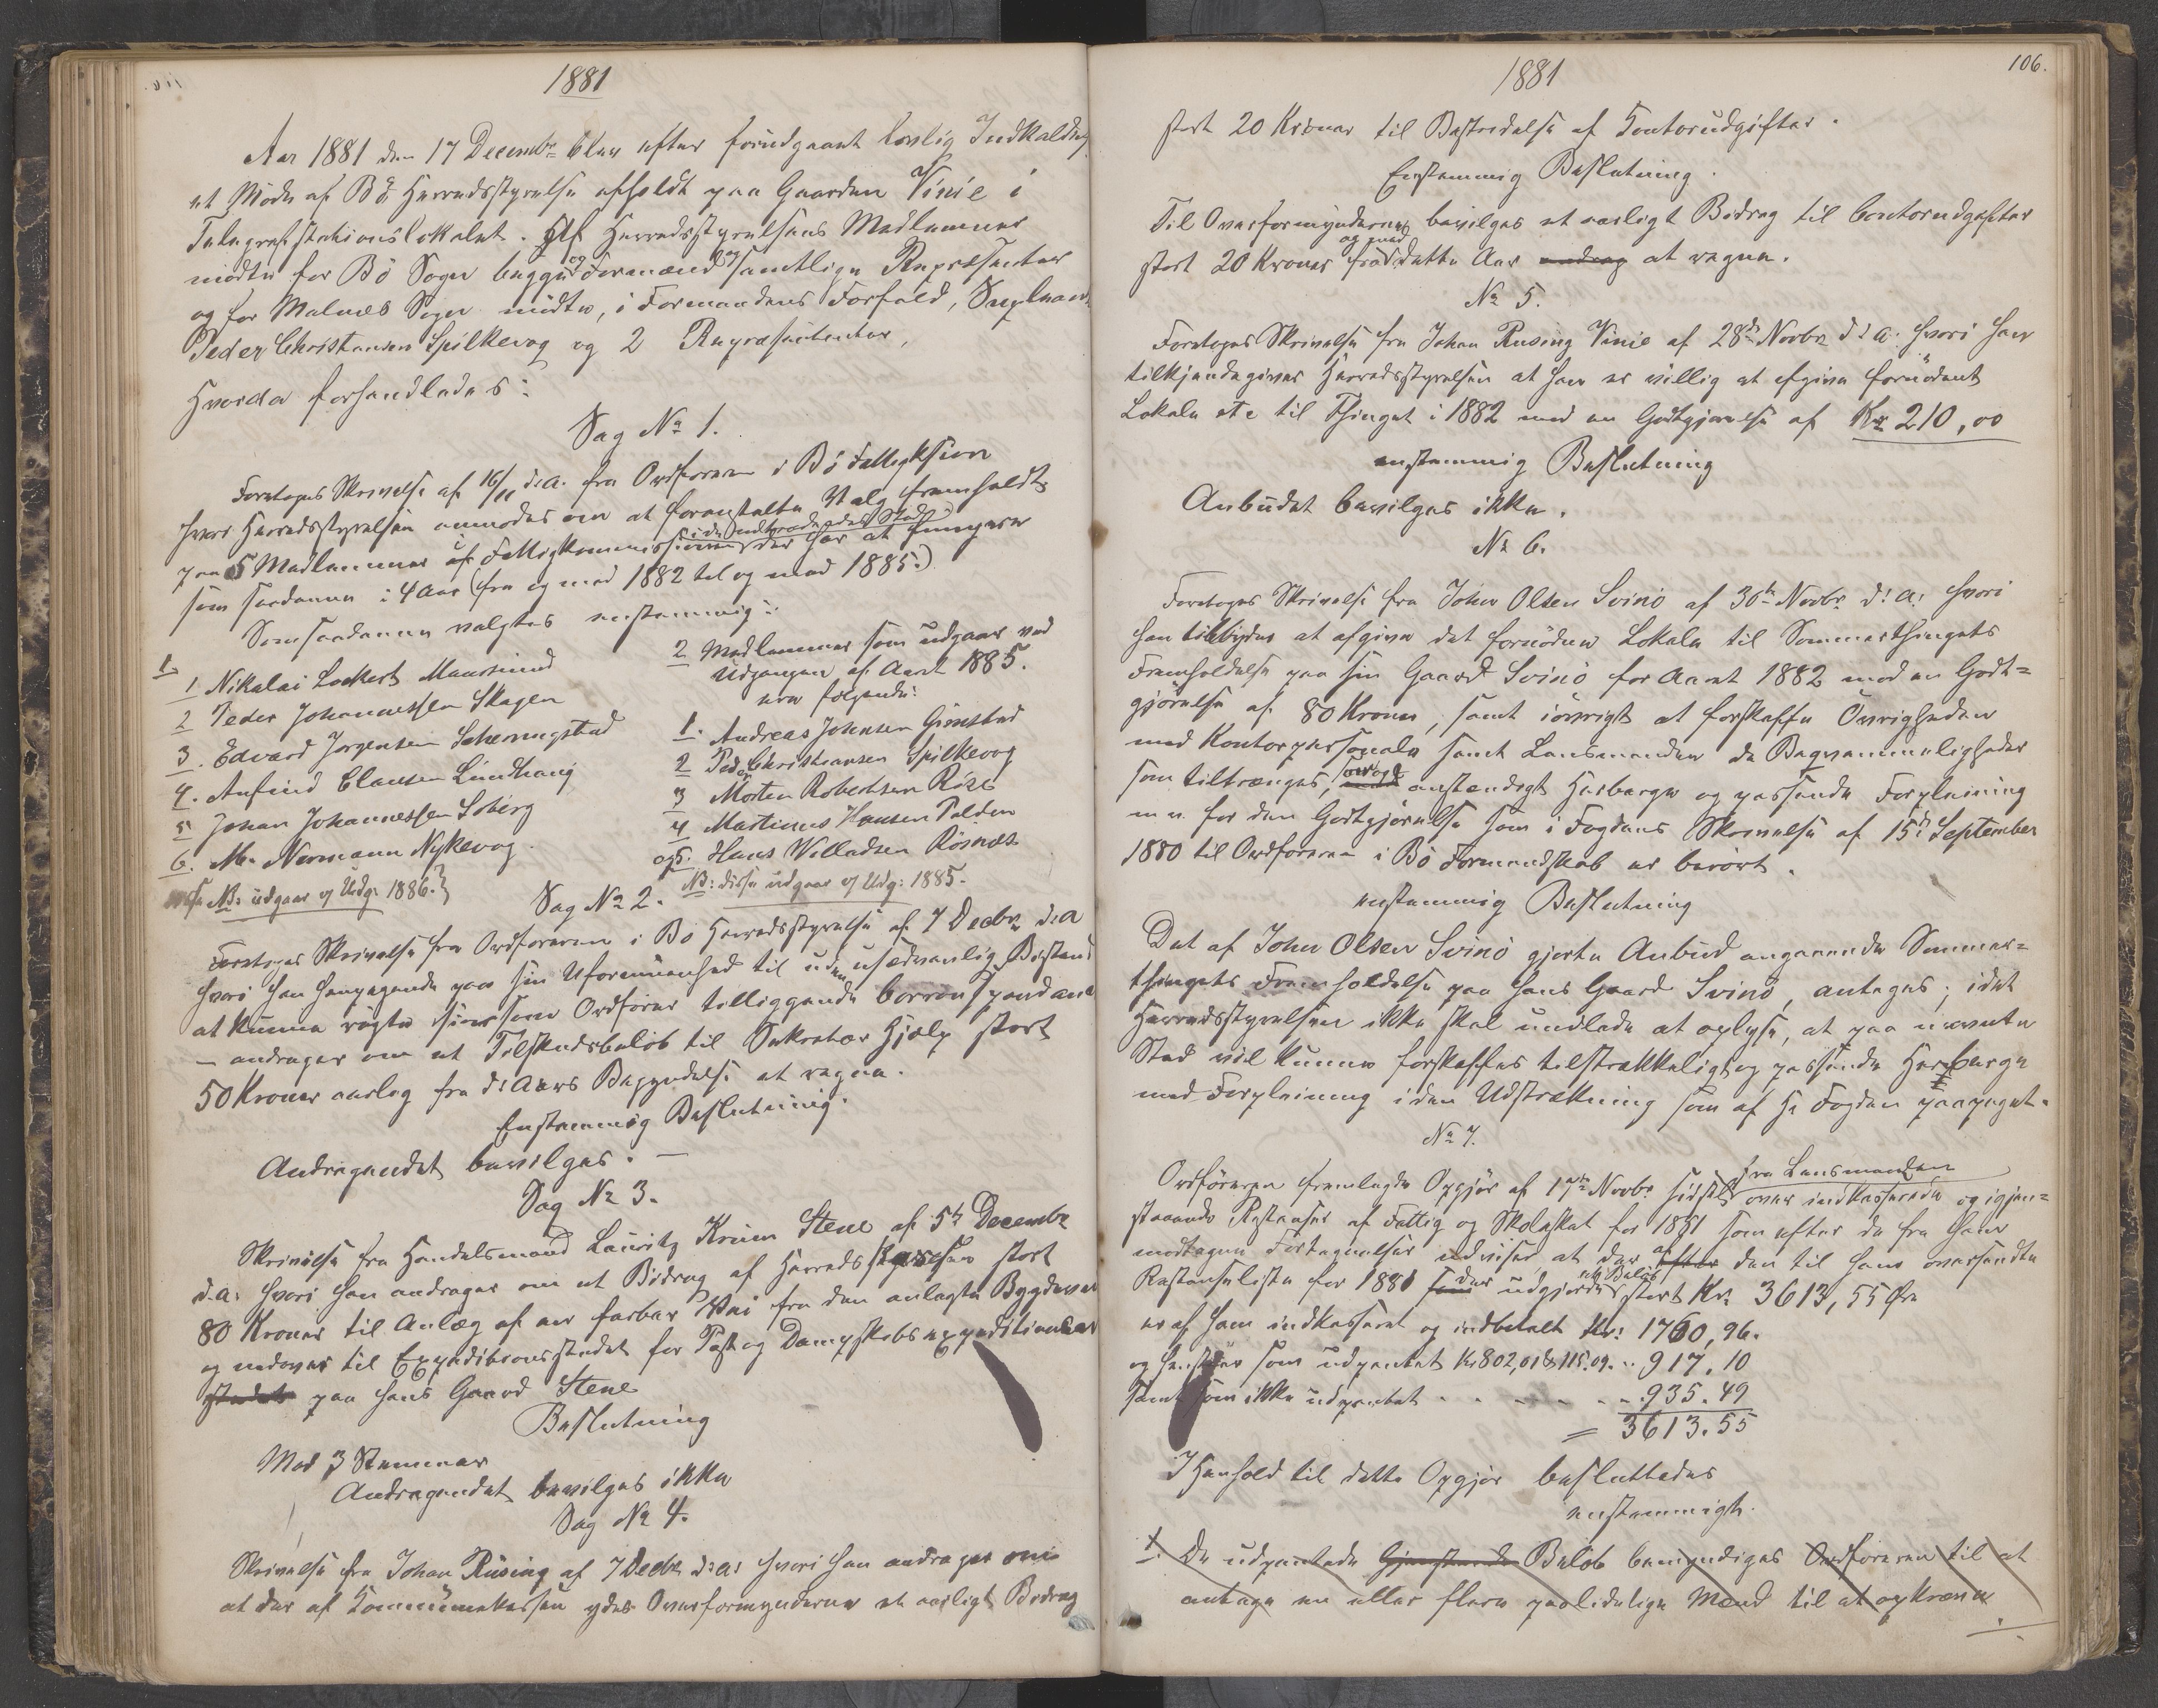 1881
Aar 1881 den 17 Decembr blev efter forudgaaet lovlig Indkaldelse
et Møde af Bø Herredsstyrelse afholdt paa Gaarden Vinie i
Telegrafstationslokalet. Af Herredsstyrelsens Medlemmer
mødte for Bø Sogn begge Formænd og samtlige Repræsentanter
og for Malnes Sogn mødte, i Formandens Forfald, Suppleant
Peder Christensen Spilkevog og 2 Repræsentanter,
Hvorda forhandledes:
Sag No 1.
Foretoges Skrivelse af 16/11 d.A. fra Ordføreren i Bø Fattigkom
hvori Herredsstyrelsen anmodes om at foranstalte Valg fremholdt
i de udtrædendes Sted
paa 5 Medlemmer af Fattigkommissionen der har at fungere
som saadanne i 4 Aar (fra og med 1882 til og med 1885.)
Som saadanne valgtes enstemmig:
1 Nikolai Lockert Maursund
2 Peder Johannessen Skagen
3. Edvard Jørgensen Scheringstad
4. Anfind Clausen Lundhaug
5 Johan Johannessen Soberg
6. M. Normann Nykevog.
NB: udgaar v/ Udg. 1886.
2 Medlemmer som udgaar ved
Udgangen af Aaret 1885.
ere følgende:
1. Andreas Johnsen Grimstad
2 Peder Christiansen Spilkevog
3 Morten Robertsen Røsæs
4 Martinus Hansen Polden
og 5. Hans Willadsen Røsnæs
NB: disse udgaar v/ Udg: 1885.
Sag No 2.
Foretoges Skrivelse fra Ordføreren i Bø Herredsstyrelse af 7 Decbr d.A
hvori han henpegende paa sin Uformuenhed til uden usædvanlig Bistand
at kunne røgte sin som Ordfører tilliggende Correnspondance
– andrager om et Tilskudsbeløb til Sekretær Hjælp stort
50 Kroner aarlig fra d: Aars Begyndelse at regne.
Enstemmig Beslutning.
Andragendet bevilges. –
Sag No 3.
Skrivelse fra Handelsmand Lauritz Krüm Stene af 5te Decembr
d.A: hvori han andrager om et Bidrag af Herredsstyrelsen stort
80 Kroner til Anlæg af en farbar Vei fra den anlagte Bygdevei
og nedover til Expeditionsstedet for Post og Dampskibsexpeditionen
stedet paa hans Gaard Stene
Beslutning
Mod 3 Stemmer
Andragendet bevilges ikke
Sag No 4.
Skrivelse fra Johan Rüsing af 7 Decbr d:A: hvori han andrager om
at der af Kommunekassen ydes Overformynderne et aarligt Bidrag
106.
1881
stort 20 Kroner til Bestridelse af Contorudgifter.
Enstemmig Beslutning.
Til Overformynderne bevilges et aarligt Bidrag til Contorudgifter
og med
stort 20 Kroner fra dette Aar at regne.
No 5.
Foretoges Skrivelse fra Johan Rusing Vinie af 28de Novbr d: A: hvori han
tilkjendegiver Herredsstyrelsen at han er villig at afgive fornødent
Lokale etc til Thinget i 1882 med en Godtgjørelse af Kr 210,00
enstemmig Beslutning
Anbudet bevilges ikke.
No 6.
Foretoges Skrivelse fra John Olsen Svinø af 30te Novbr d: A: hvori
han tilbyder at afgive det fornødne Lokale til Sommerthingets
Fremholdelse paa sin Gaard Svinø for Aaret 1882 mod en Godt=
gjørelse af 80 Kroner, samt iøvrigt at forskaffe Øvrigheden
med Kontorpersonale samt Lensmanden de Beqvemmeligheder
som tiltrænges, saavel anstændigt Herberge og passende Forpleining
m.v. for den Godtgjørelse som i Fogdens Skrivelse af 15de September
1880 til Ordføreren i Bø Formandskab er berørt.
enstemmig Beslutning
Det af John Olsen Svinø gjorte Anbud angaaende Sommer=
thingets Fremholdelse paa hans Gaard Svinø, antages; idet
Herredsstyrelsen ikke skal undlade at oplyse, at paa nævnte
Sted vil kunne forskaffes tilstrækkeligt og passende Herberge
med Forpleining i den Udstrækning som af Hr Fogden paapeget.
No 7.
fra Lensmanden
Ordføreren fremlagde Opgjør af 17de Novbr sidstl over indkasserede og igjen=
staaende Restanser af Fattig og Skoleskat for 1881 som efter de fra ham
modtagne Fortegnelser udviser, at der af den til ham oversendte
et Beløb
Restanseliste for 1881 der udgjorde stort Kr. 3613,55 Øre
er af ham indkasseret og indbetalt Kr: 1760,96.
og henstaar som udpantet Kr 802,01 & 115.09. .. 917,10
samt som ikke udpantet - - - - - 935.49
= 3613.55
I Henhold til dette Opgjør besluttedes
enstemmigt.
1. De udpantede Gjenstande Beløb bemyndiges Ordføreren til at
antage en eller flere paalidelige Mænd til at opkræve